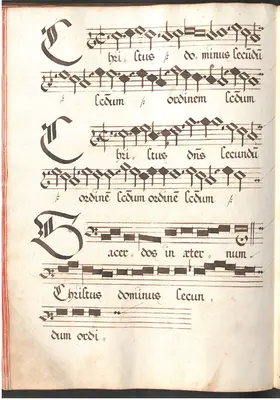 Chri . stus 𝄎 do . minus secūdū
secdum 𝄎 ordinem secdum 𝄎
Chri . stus dn̄s secundu
𝄎 ordinē secdum ordinē secdum 𝄎
Sacer . dos in æter . num .
Christus dominus secun .
dum ordi .